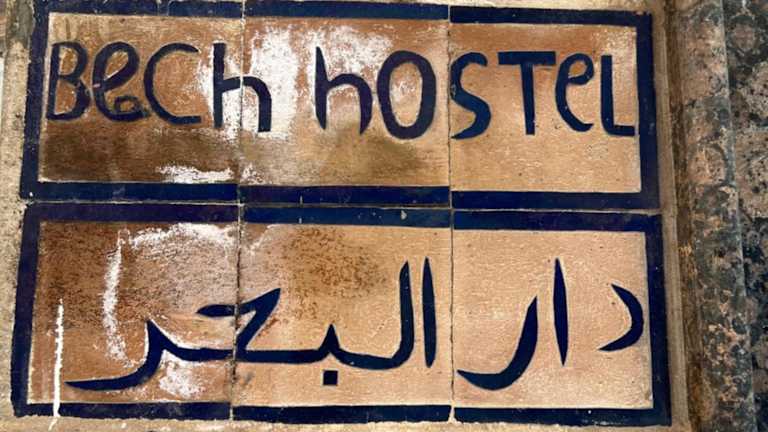 Bech hostel
دار البحر